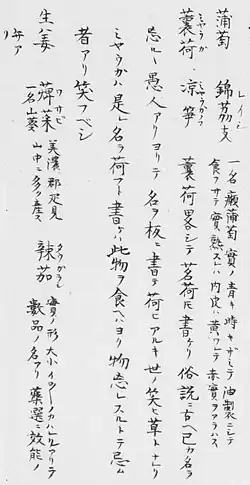 蒲萄 錦茘支 一名癩蒲萄 實ノ青キ時キザミテ油製ニシテ
食フサテ實熟スレハ内皮ハ黄ワテ赤實ヲアラハス
蘘荷 凉笋 蘘荷畧シテ茗荷トモ書ケリ 俗説ニ古ヘ己カ名ヲ
忘ルヽ愚人アリヨリテ名ヲ板ニ書テ荷ヒアルキ世ノ笑ヒ草トナレリ
ミヤウカハ是レ名ヲ荷フト書ケハ此物ヲ食ヘハヨク物忘レスルトテ忌ム
者アリ笑フベシ
生姜 蔊菜 一名山葵 美濃郡疋見
山中ニ多ク産ス 辣茄 實ノ形大小イロ〳〵ノカハレルアリテ
數品ノ名アリ 藥選ニ效能ノ